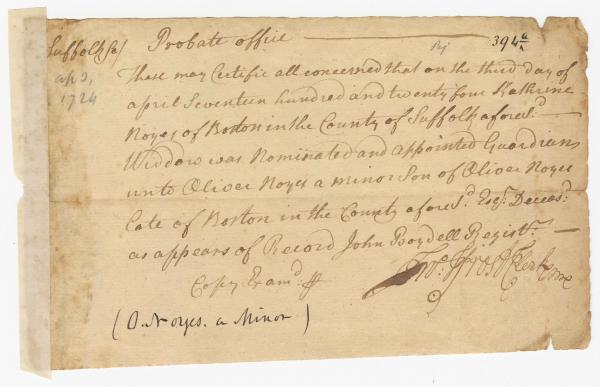 Suffolk Ss/ Probate office — 394 a
ap 3,
1724
These may Certifie all concerned that on the third day of
april Seventeen hundred and twenty four Kathrine
Noyes of Boston in the County of Suffolk afores.d —
Widdow was Nominated and appointed Guardian
unto Oliver Noyes a minor Son of Oliver Noyes
Late of Boston in the County afores.d Esq.r Deceas.d
as appears of Record John Boydell Regist.r —
Copy Exam.d
(O. Noyes. a Minor)